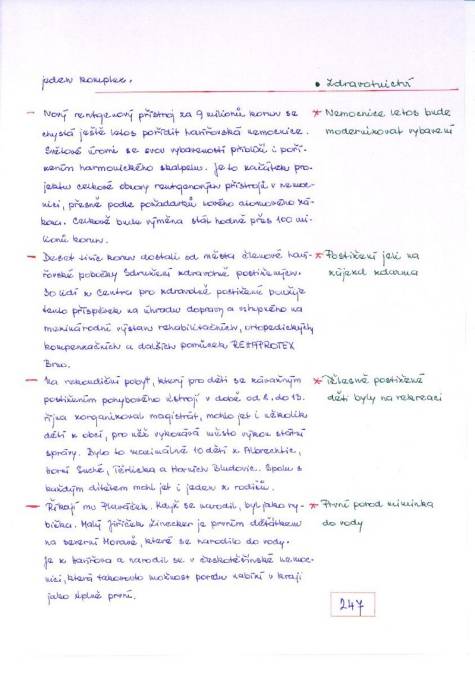 jeden komplex.
• Zdravotnictví
- Nový rentgenový přístroj za 9 milionů korun se
chystá ještě letos pořídit havířovská nemocnice.
Světové úrovni se svou vybaveností přiblíží i poří-
zením harmonického skalpelu. Je to začátek pro-
jektu celkové obnovy rentgenových přístrojů v nemoc-
nici, přesně podle požadavků nového atomového zá-
kona. Celkově bude výměna stát hodně přes 100 mi-
lionů korun.
* Nemocnice letos bude
modernizovat vybavení
- Deset tisíc korun dostali od města členové haví-
řovské pobočky Sdružení zdravotně postižených.
30 lidí z Centra pro zdravotně postižené použije
tento příspěvek na úhradu dopravy a vstupného na
mezinárodní výstavu rehabilitačních, ortopedických,
kompenzačních a dalších pomůcek REHAPROTEX
Brno.
* Postižení jeli na
zájezd zdarma
- Na rekondiční pobyt, který pro děti se závažným
postižením pohybového ústrojí v době od 2. do 13.
října zorganizoval magistrát, mohlo jet i několik
dětí z obcí, pro něž vykonává město výkon státní
správy. Bylo to maximálně 10 dětí z Albrechtic,
Horní Suché, Těrlicka a Horních Bludovic. Spolu s
každým dítětem mohl jet i jeden z rodičů.
* Tělesně postižené
děti byly na rekreaci
- Říkají mu Plaváček. Když se narodil, byl jako ry-
bička. Malý Jiříček Linecker je prvním děťátkem
na severní Moravě, které se narodilo do vody.
Je z Havířova a narodil se v českotěšínské nemoc-
nici, která takovouto možnost porodu nabízí v kraji
jako úplně první.
* První porod miminka
do vody
247